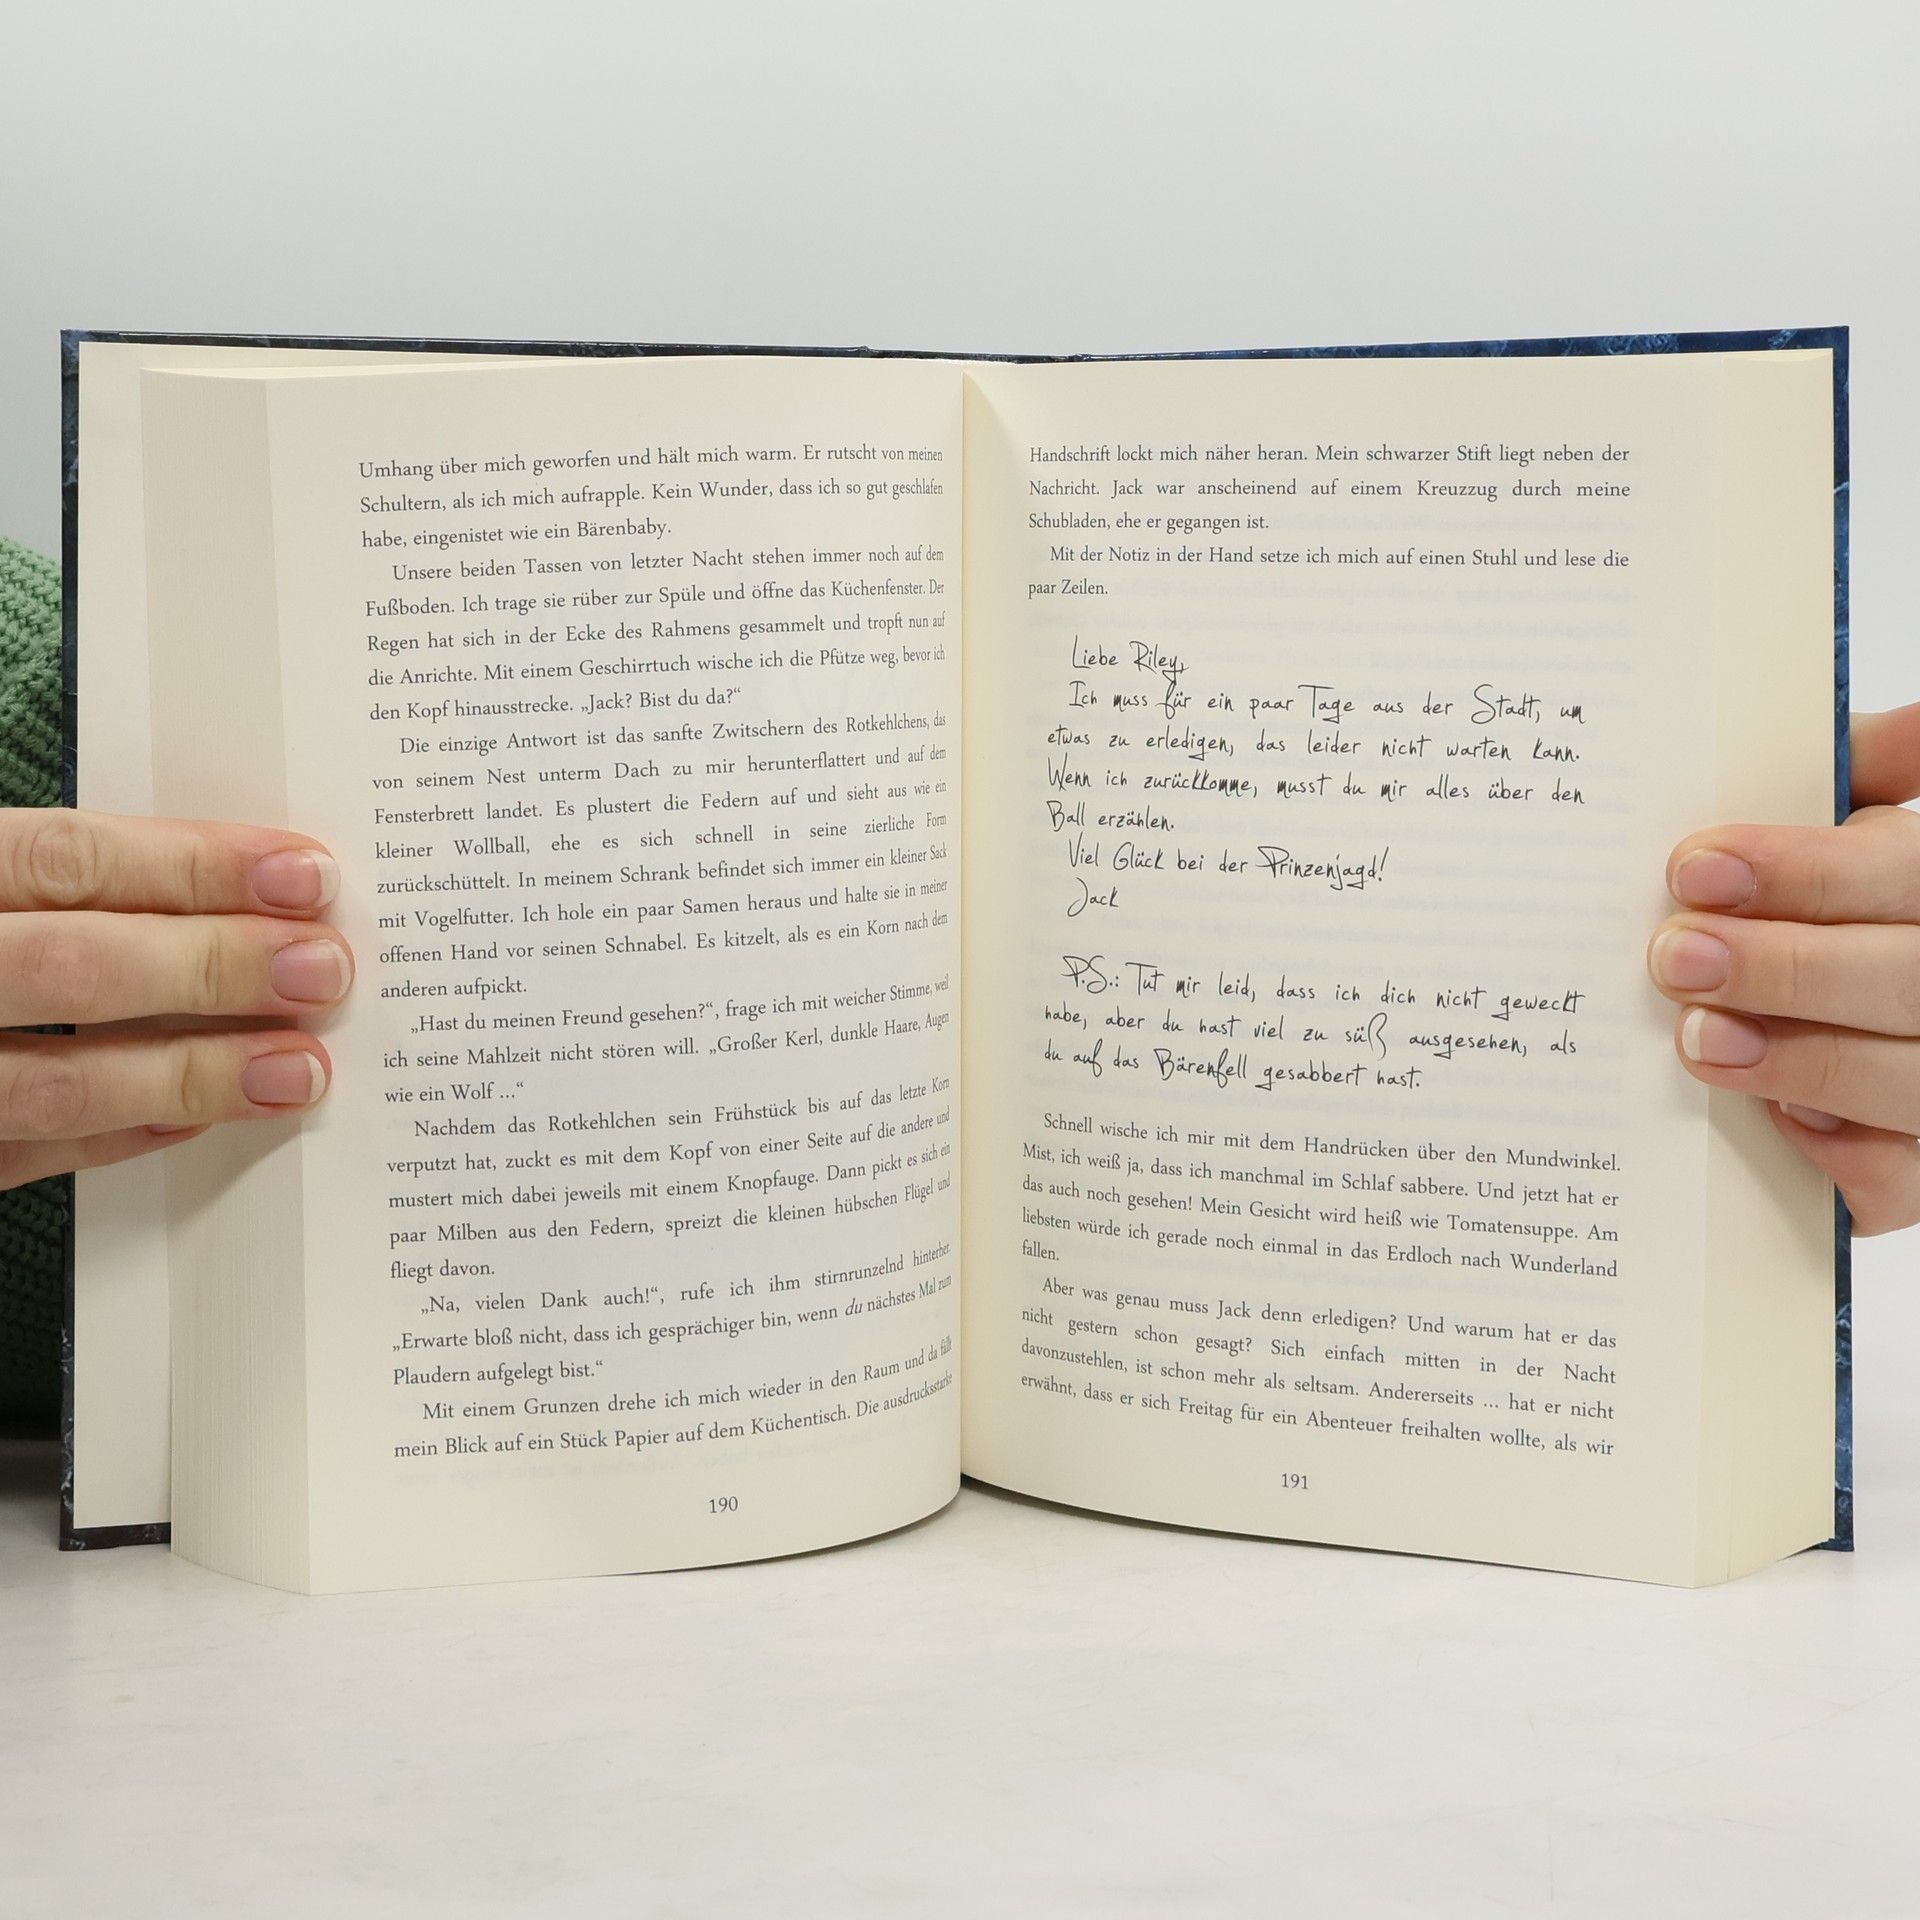 Umhang über mich geworfen und hält mich warm. Er rutscht von meinen
Schultern, als ich mich aufrapple. Kein Wunder, dass ich so gut geschlafen
habe, eingenistet wie ein Bärenbaby.
Unsere beiden Tassen von letzter Nacht stehen immer noch auf dem
Fußboden. Ich trage sie rüber zur Spüle und öffne das Küchenfenster. Der
Regen hat sich in der Ecke des Rahmens gesammelt und tropft nun auf
die Anrichte. Mit einem Geschirrtuch wische ich die Pfütze weg, bevor ich
den Kopf hinausstrecke. „Jack? Bist du da?“
Die einzige Antwort ist das sanfte Zwitschern des Rotkehlchens, das
von seinem Nest unterm Dach zu mir herunterflattert und auf dem
Fensterbrett landet. Es plustert die Federn auf und sieht aus wie ein
kleiner Wollball, ehe es sich schnell in seine zierliche Form
zurückschüttelt. In meinem Schrank befindet sich immer ein kleiner Sack
mit Vogelfutter. Ich hole ein paar Samen heraus und halte sie in meiner
offenen Hand vor seinen Schnabel. Es kitzelt, als es ein Korn nach dem
anderen aufpickt.
„Hast du meinen Freund gesehen?“, frage ich mit weicher Stimme, weil
ich seine Mahlzeit nicht stören will. „Großer Kerl, dunkle Haare, Augen
wie ein Wolf ...“
Nachdem das Rotkehlchen sein Frühstück bis auf das letzte Korn
verputzt hat, zuckt es mit dem Kopf von einer Seite auf die andere und
mustert mich dabei jeweils mit einem Knopfauge. Dann pickt es sich ein
paar Milben aus den Federn, spreizt die kleinen hübschen Flügel und
fliegt davon.
„Na, vielen Dank auch!“, rufe ich ihm stirnrunzelnd hinterher.
„Erwarte bloß nicht, dass ich gesprächiger bin, wenn du nächstes Mal zum
Plaudern aufgelegt bist.“
Mit einem Grunzen drehe ich mich wieder in den Raum und da fällt
mein Blick auf ein Stück Papier auf dem Küchentisch. Die ausdrucksstarke
190
Handschrift lockt mich näher heran. Mein schwarzer Stift liegt neben der
Nachricht. Jack war anscheinend auf einem Kreuzzug durch meine
Schubladen, ehe er gegangen ist.
Mit der Notiz in der Hand setze ich mich auf einen Stuhl und lese die
paar Zeilen.
Liebe Riley,
Ich muss für ein paar Tage aus der Stadt, um
etwas zu erledigen, das leider nicht warten kann.
Wenn ich zurückkomme, musst du mir alles über den
Ball erzählen.
Viel Glück bei der Prinzenjagd!
Jack
P.S.: Tut mir leid, dass ich dich nicht geweckt
habe, aber du hast viel zu süß ausgesehen, als
du auf das Bärenfell gesabbert hast.
Schnell wische ich mir mit dem Handrücken über den Mundwinkel.
Mist, ich weiß ja, dass ich manchmal im Schlaf sabbere. Und jetzt hat er
das auch noch gesehen! Mein Gesicht wird heiß wie Tomatensuppe. Am
liebsten würde ich gerade noch einmal in das Erdloch nach Wunderland
fallen.
Aber was genau muss Jack denn erledigen? Und warum hat er das
nicht gestern schon gesagt? Sich einfach mitten in der Nacht
davonzustehlen, ist schon mehr als seltsam. Andererseits ... hat er nicht
erwähnt, dass er sich Freitag für ein Abenteuer freihalten wollte, als wir
191